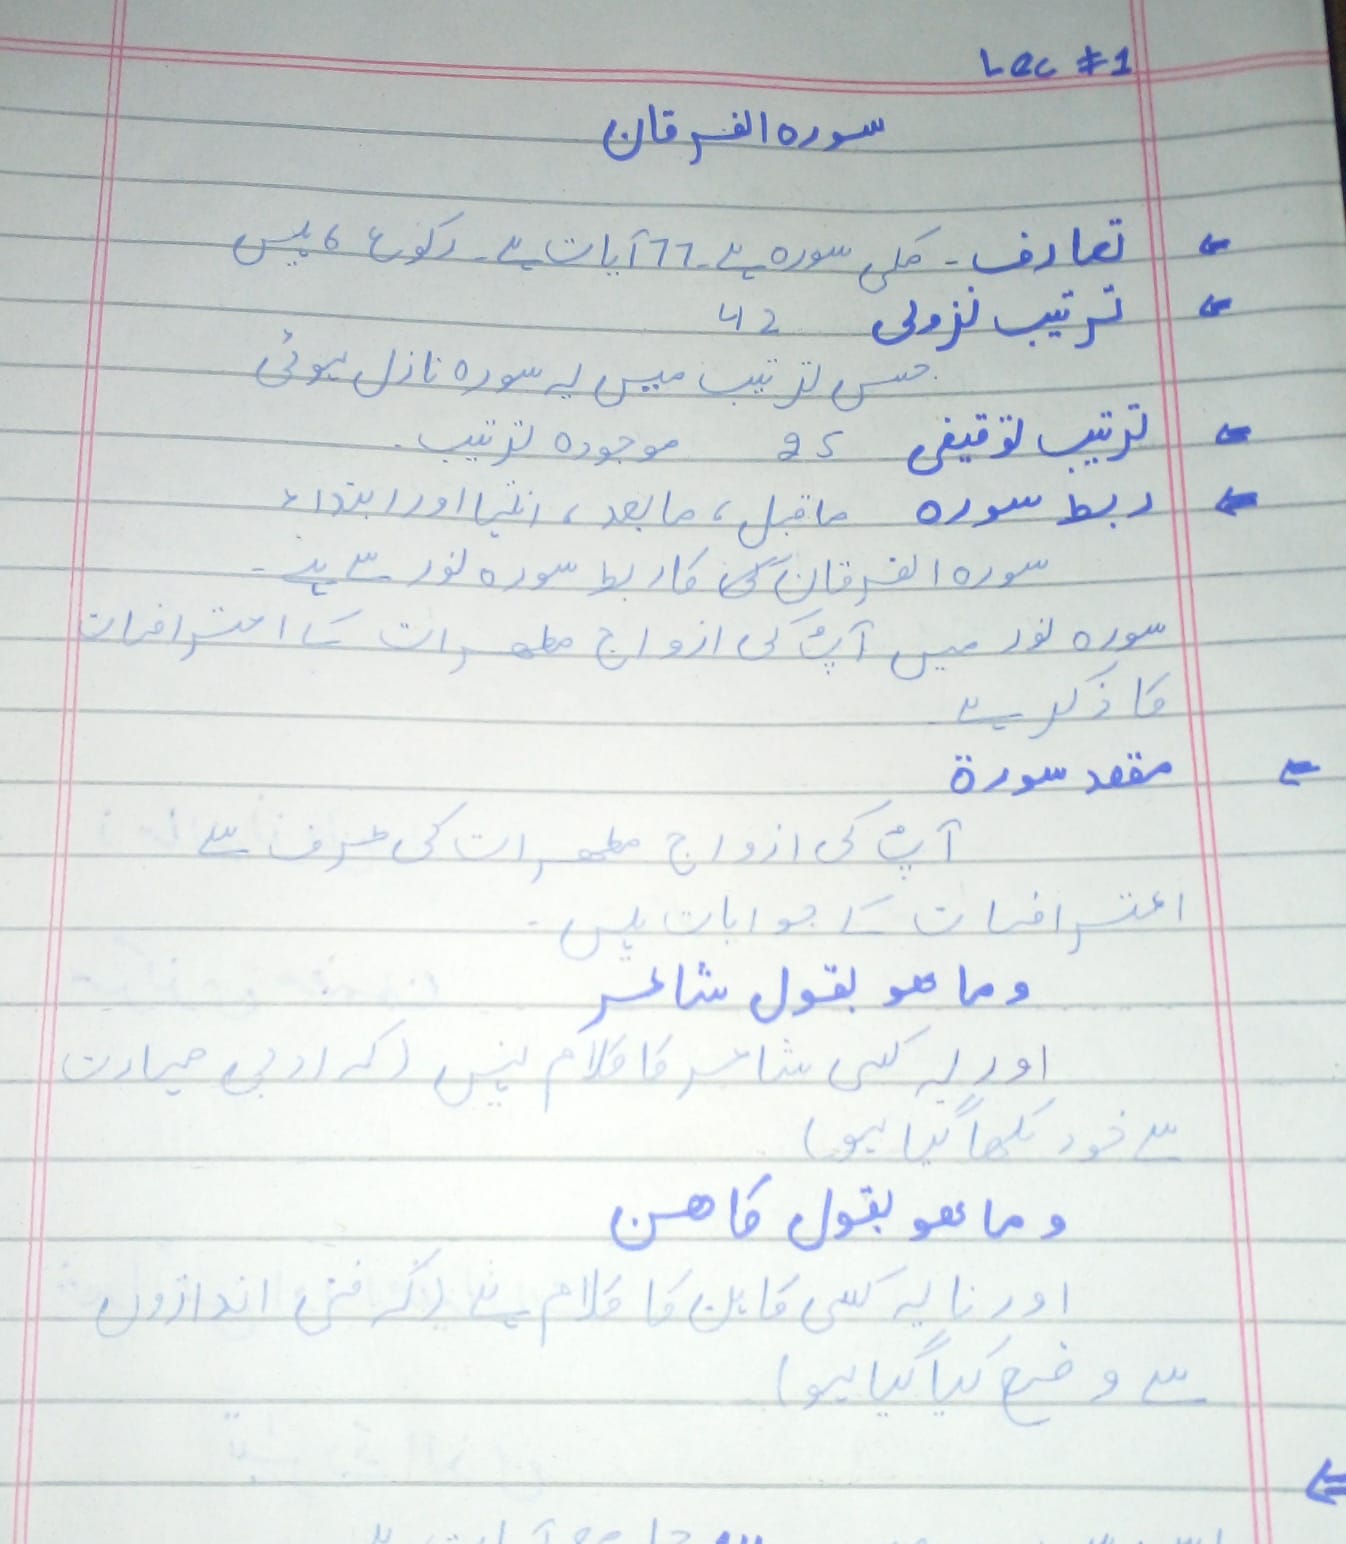 Lec #1
سورہ الفرقان
تعارف - مکی سورہ ہے۔ 77 آیات ہے۔ رکوع 6 ہیں
ترتیب نزولی 42
جس ترتیب میں یہ سورہ نازل ہوئی
ترتیب توقیفی 25 موجودہ ترتیب۔
ربط سورہ ماقبل، مابعد، انتہا اور ابتداء
سورہ الفرقان کا ربط سورہ نور سے ہے۔
سورہ نور میں آپؐ کی ازواج مطہرات کے اعتراضات
کا ذکر ہے
مقصد سورۃ
آپؐ کی ازواج مطہرات کی طرف سے
اعتراضات کے جوابات ہیں۔
وما ھو بقول شاعر
اور یہ کسی شاعر کا کلام نہیں (کہ ادبی مہارت
سے خود لکھا گیا ہو)
وما ھو بقول کاھن
اور نا یہ کسی کاہن کا کلام ہے (کہ فنی اندازوں
سے وضع کیا گیا ہو)